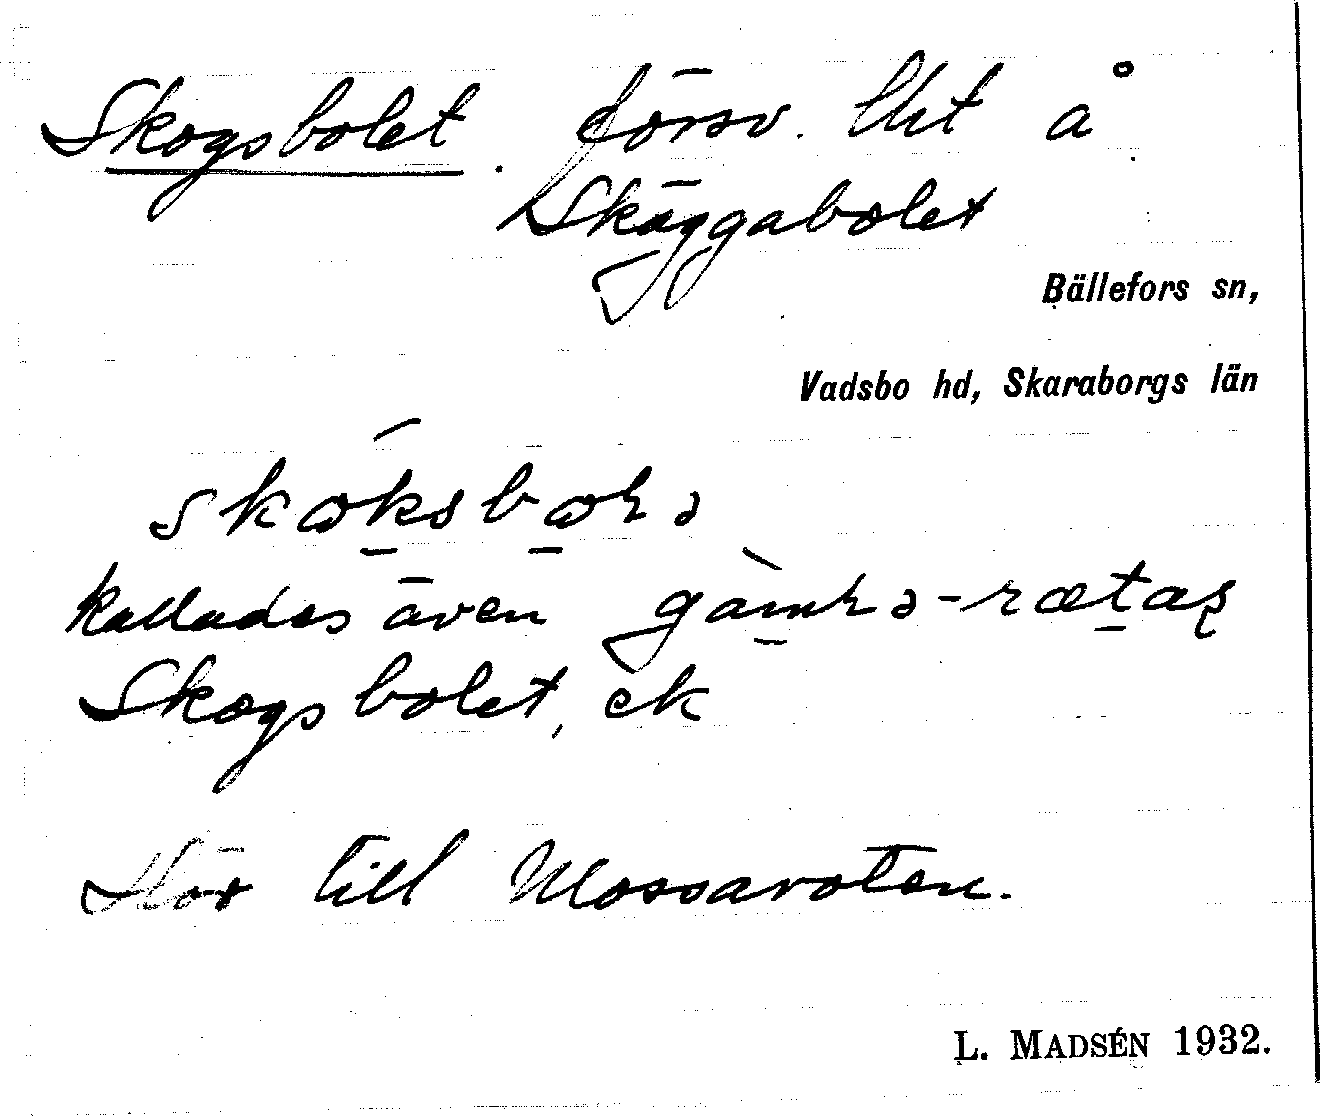 Skogsbolet. försv. lht å
Skäggabolet
Bällefors sn,
Vadsbo hd, Skaraborgs län
kallades även
Skogsbolet, ek
Hör till Mossaroten.
L. MADSÉN 1932.